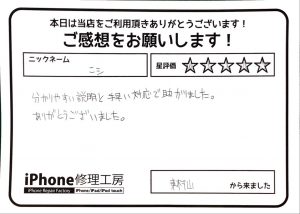 本日は当店をご利用頂きありがとうございます！
ご感想をお願いします！
ニックネーム
ニシ
星評価 ☆☆☆☆☆
分かりやすい説明と早い対応で助かりました。
ありがとうございました。
iPhone修理工房
iPhone Repair Factory iPhone/iPad/iPod touch
から来ました